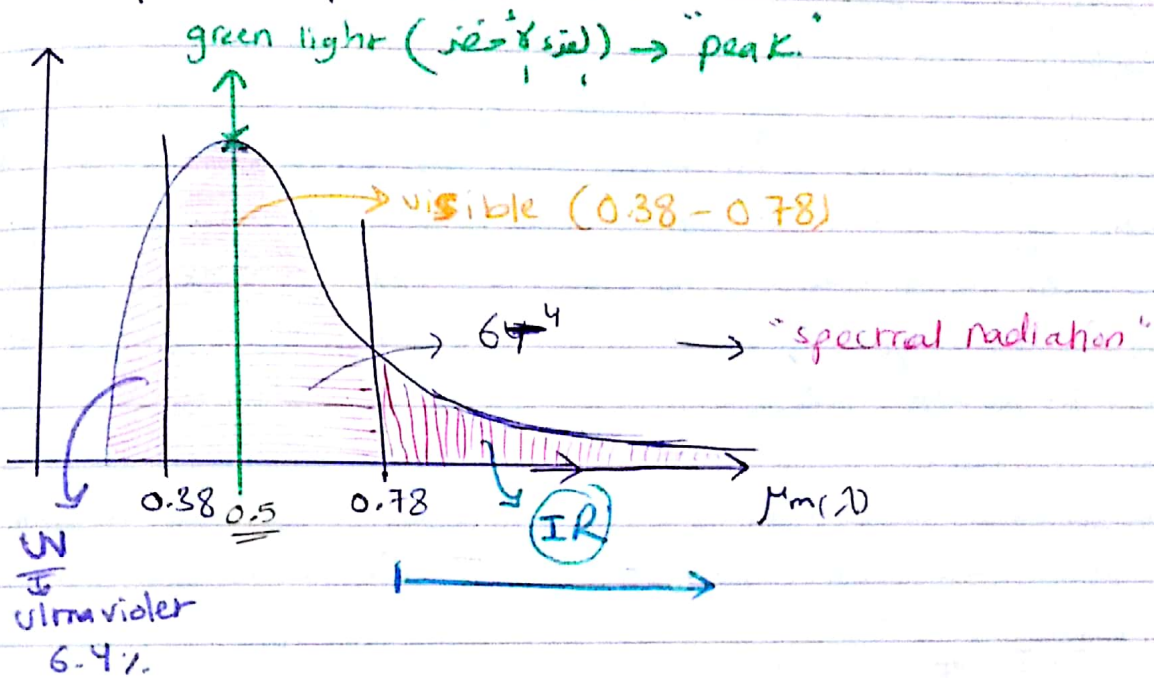 green light (الضوء الأخضر) → "peak"
visible (0.38 - 0.78)
σT⁴ → "spectral radiation"
0.38 0.5 0.78 μm(λ)
IR
UV
ultraviolet
6.4%